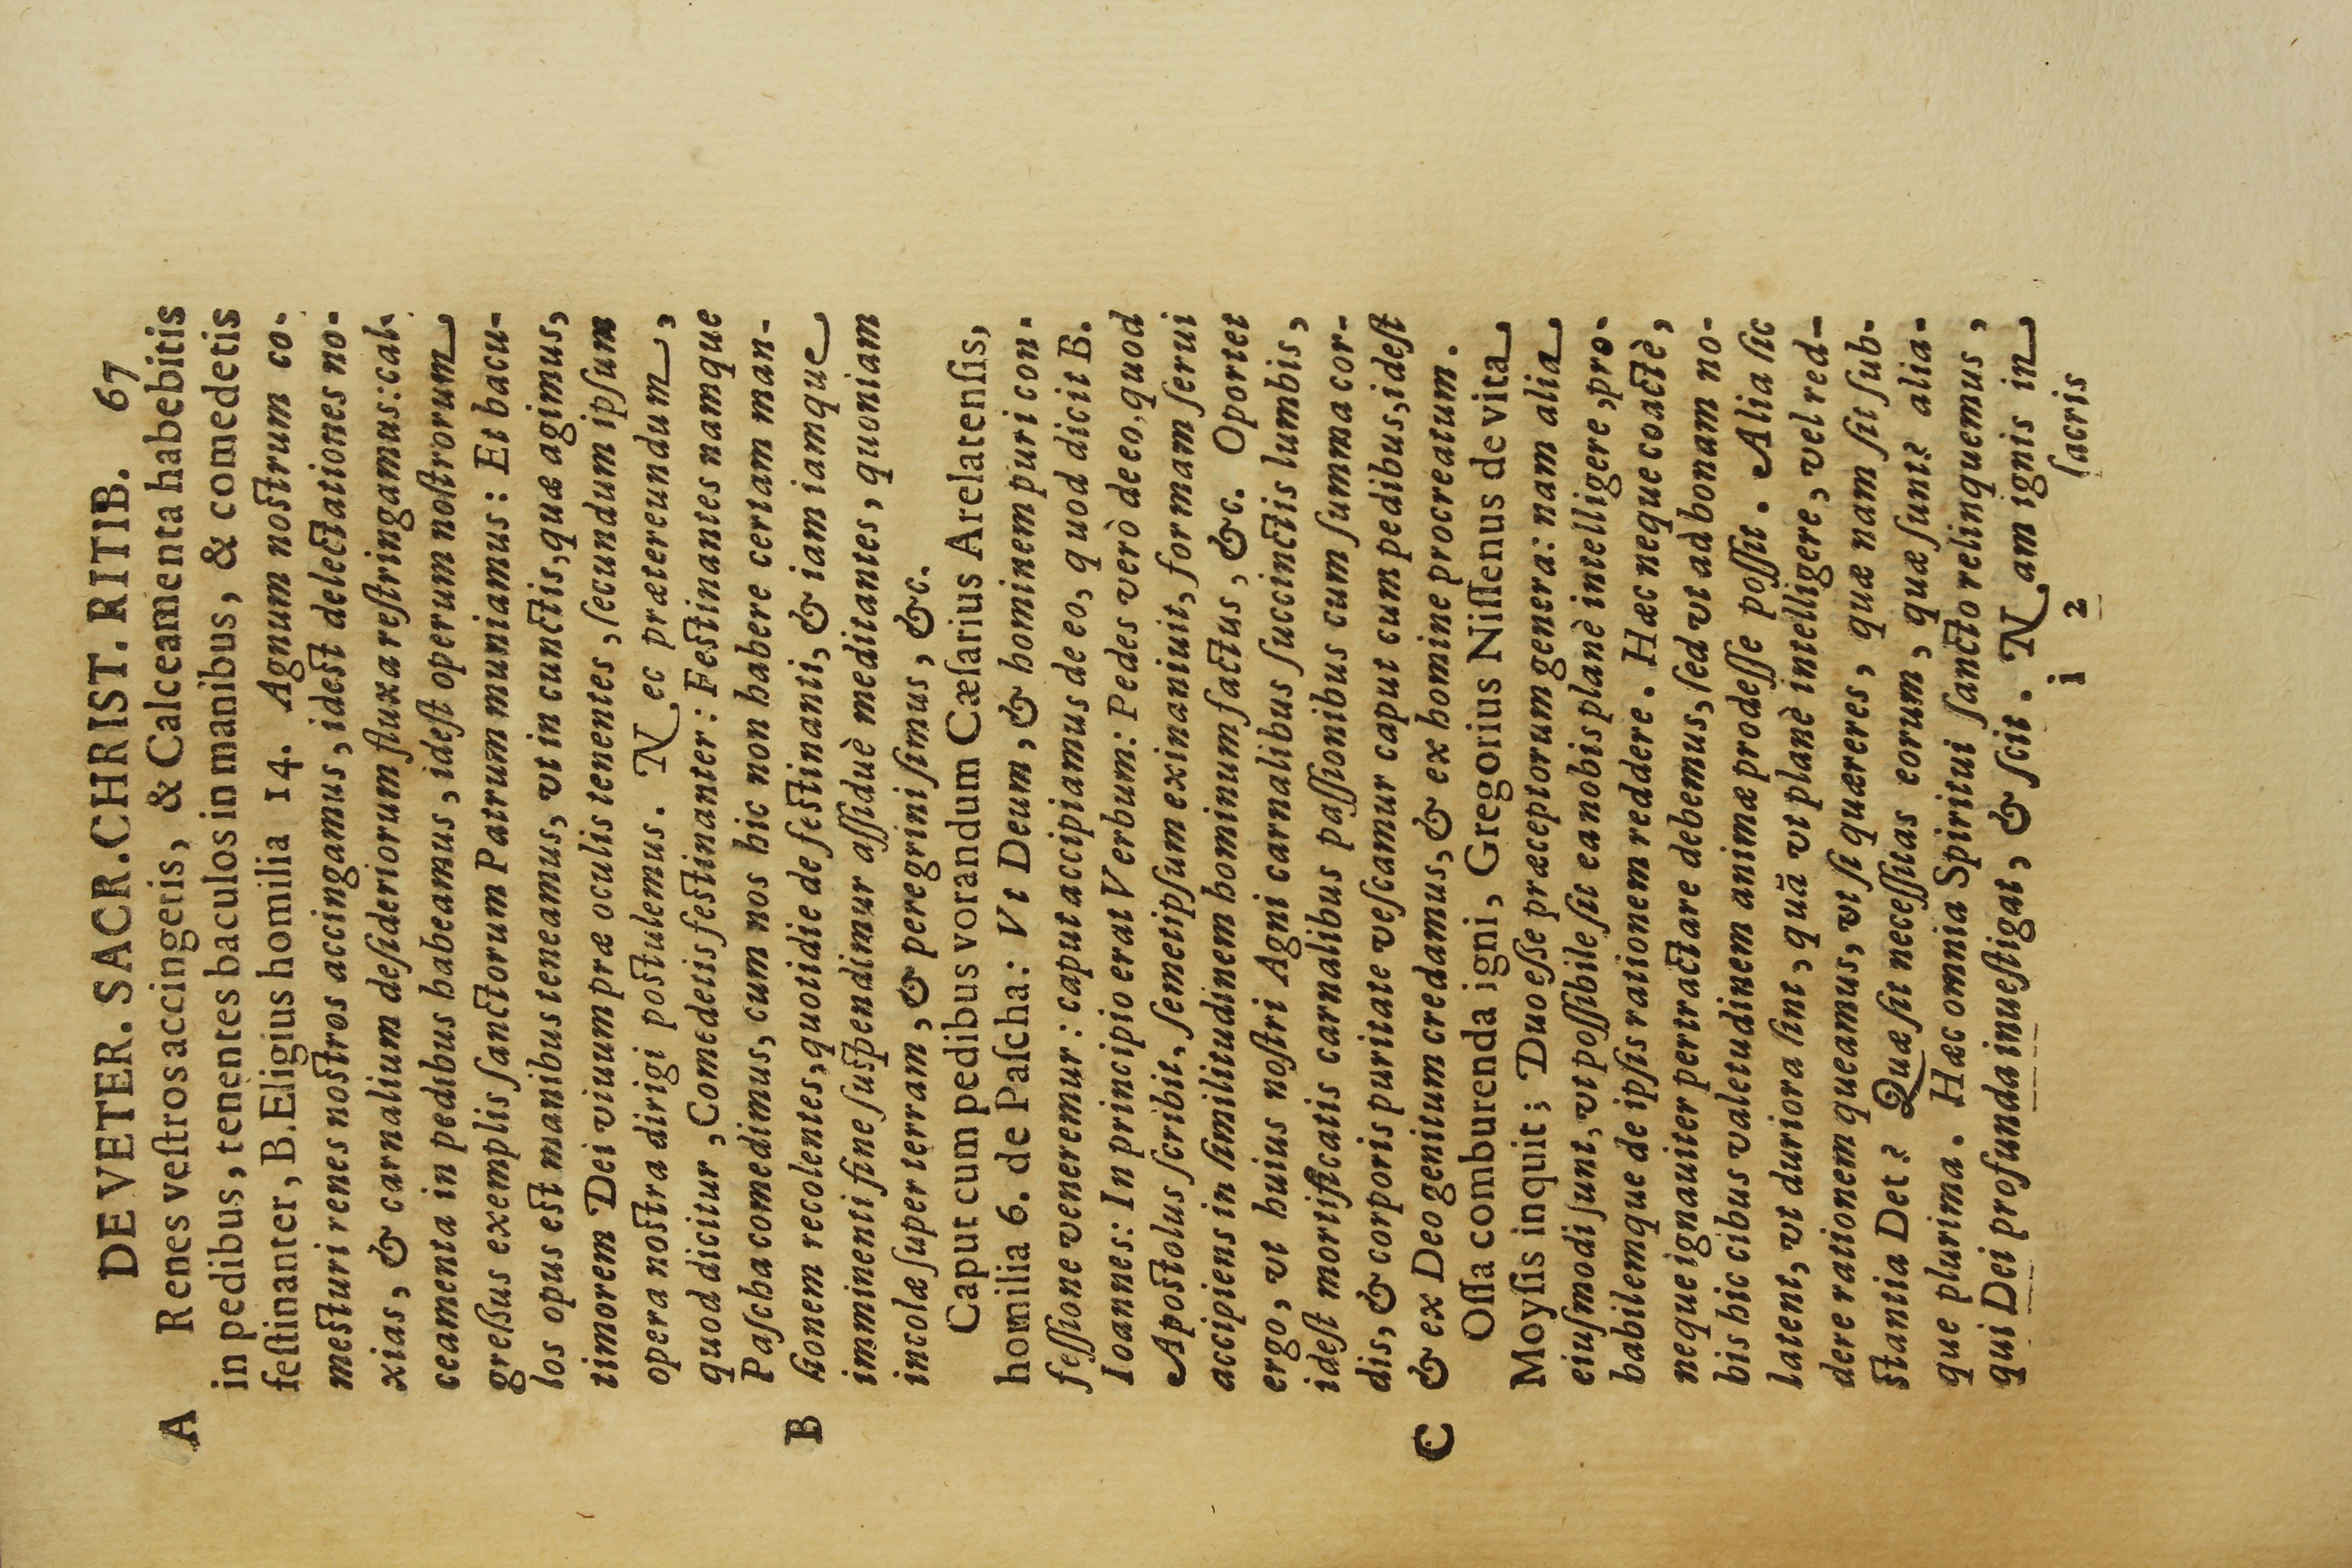 DE VETER. SACR. CHRIST. RITIB. 67
A Renes veſtros accingetis, & Calceamenta habebitis
in pedibus, tenentes baculos in manibus, & comedetis
feſtinanter, B. Eligius homilia 14. Agnum noſtrum co-
meſturi renes noſtros accingamus, ideſt delectationes no-
xias, & carnalium deſideriorum fluxa reſtringamus: cal-
ceamenta in pedibus habeamus, ideſt operum noſtrorum
greſsus exemplis ſanctorum Patrum muniamus: Et bacu-
los opus eſt manibus teneamus, vt in cunctis, quæ agimus,
timorem Dei viuum præ oculis tenentes, ſecundum ipſum
opera noſtra dirigi poſtulemus. Nec prætereundum,
quod dicitur, Comedetis feſtinanter: Feſtinantes namque
B Paſcha comedimus, cum nos hic non habere certam man-
ſionem recolentes, quotidie de feſtinanti, & iam iamque
imminenti fine ſuſpendimur aſſiduè meditantes, quoniam
incolæ ſuper terram, & peregrini ſimus, &c.
Caput cum pedibus vorandum Cæſarius Arelatenſis,
homilia 6. de Paſcha: Vt Deum, & hominem puri con-
feſſione veneremur: caput accipiamus de eo, quod dicit B.
Ioannes: In principio erat Verbum: Pedes verò de eo, quod
Apoſtolus ſcribit, ſemetipſum exinaniuit, formam ſerui
accipiens in ſimilitudinem hominum factus, &c. Oportet
ergo, vt huius noſtri Agni carnalibus ſuccinctis lumbis,
ideſt mortificatis carnalibus paſſionibus cum ſumma cor-
dis, & corporis puritate veſcamur caput cum pedibus, ideſt
C & ex Deo genitum credamus, & ex homine procreatum.
Oſſa comburenda igni, Gregorius Niſſenus de vita
Moyſis inquit; Duo eſse præceptorum genera: nam alia
eiuſmodi ſunt, vt poſſibile ſit ea nobis planè intelligere, pro-
babilemque de ipſis rationem reddere. Hæc neque coactè,
neque ignauiter pertractare debemus, ſed vt ad bonam no-
bis hic cibus valetudinem animæ prodeſſe poſſit. Alia ſic
latent, vt duriora ſint, quã vt planè intelligere, vel red-
dere rationem queamus, vt ſi quæreres, quæ nam ſit ſub-
ſtantia Dei? Quæ ſit neceſſitas eorum, quæ ſunt? alia-
que plurima. Hæc omnia Spiritui ſancto relinquemus,
qui Dei profunda inueſtigat, & ſcit. Nam ignis in
i 2 ſacris